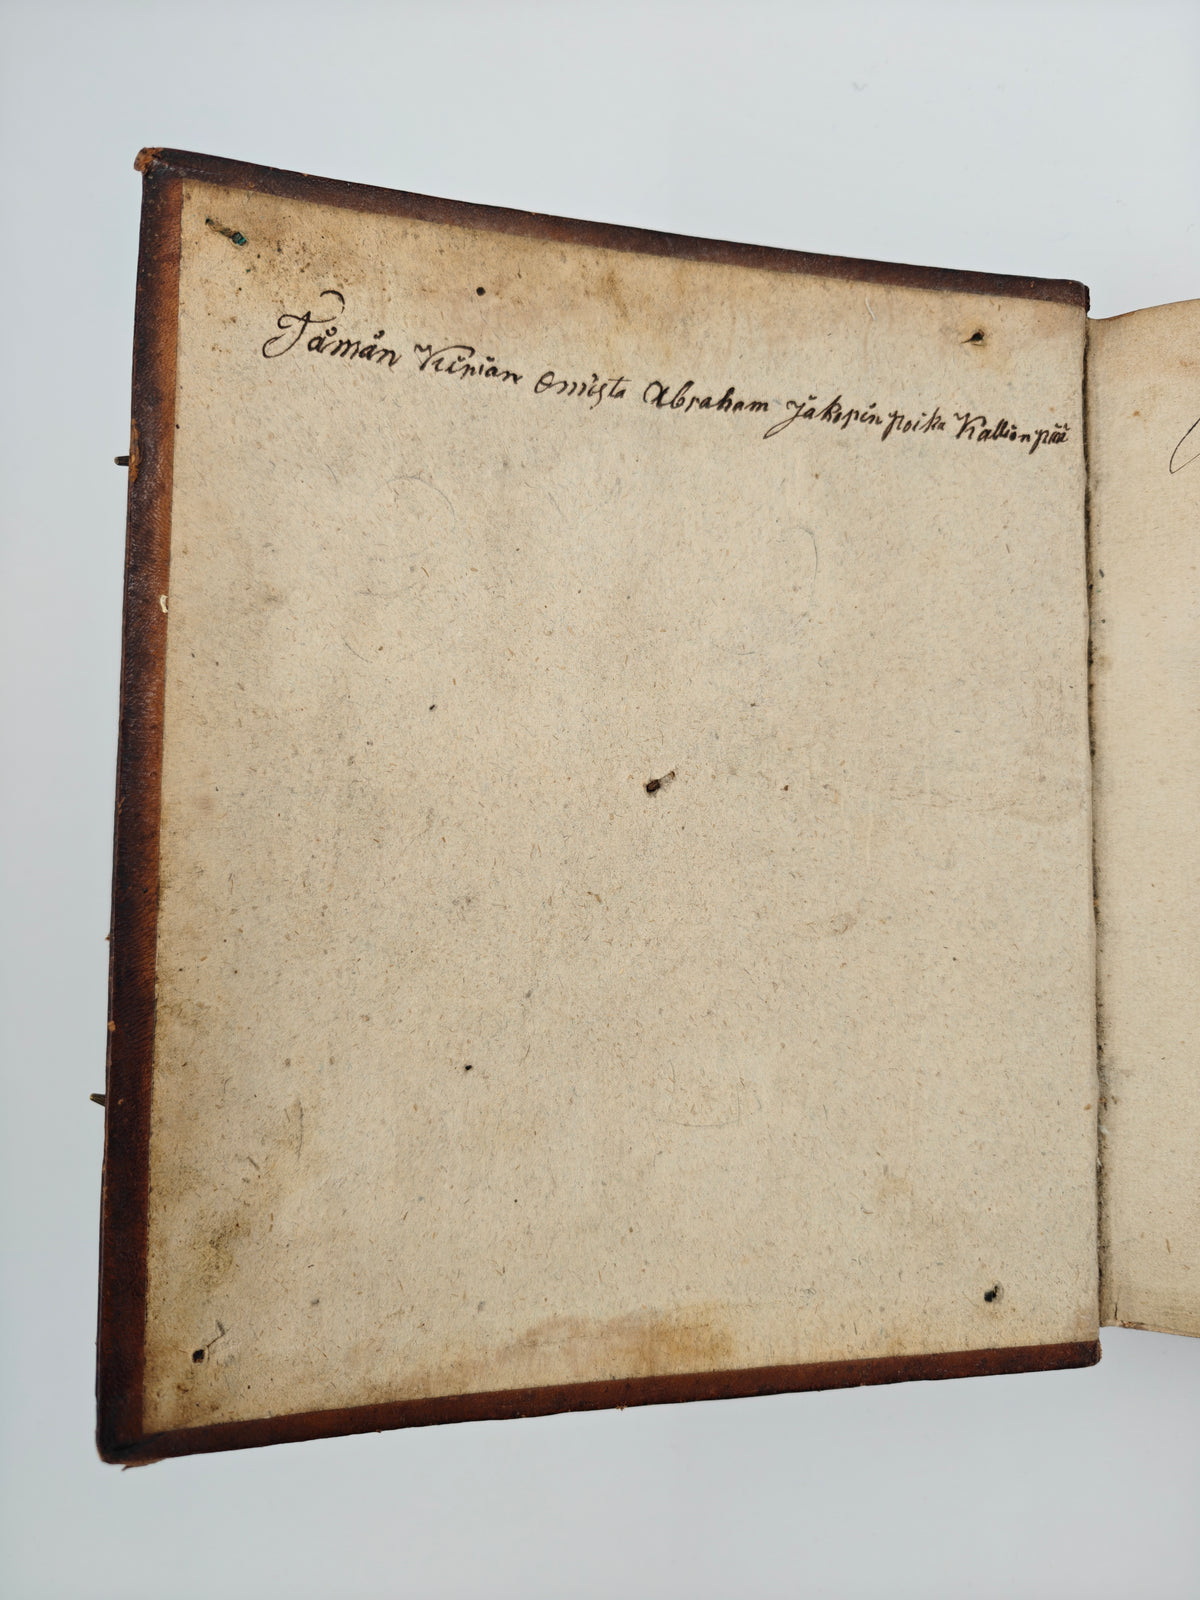 Tämän Kirjan omista Abraham Jakopin poika Kallionpää